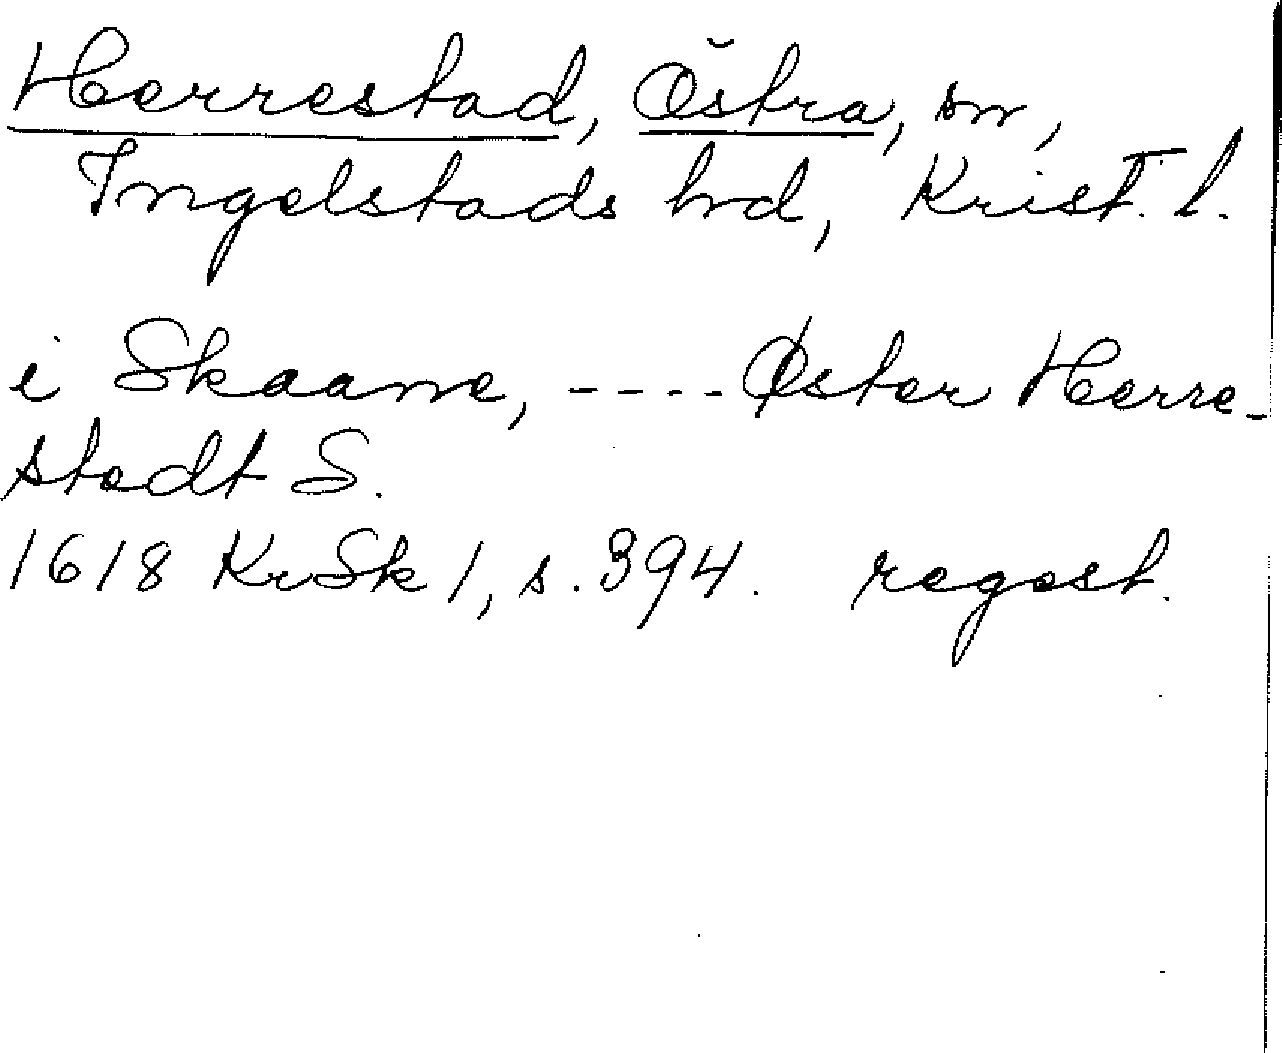 Herrestad, Östra, sn,
Ingelstads hd, Krist. l.
i Skaane, ---- Øster Herre-
stedt S.
1618 KrSk 1, s. 394. regest.